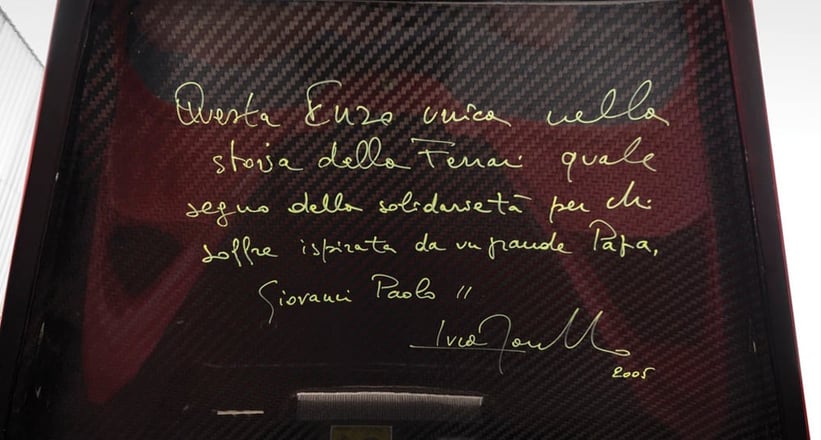 Questa Enzo unica nella
storia della Ferrari quale
segno della solidarietà per chi
soffre ispirata da un grande Papa,
Giovanni Paolo II
Luca
2005